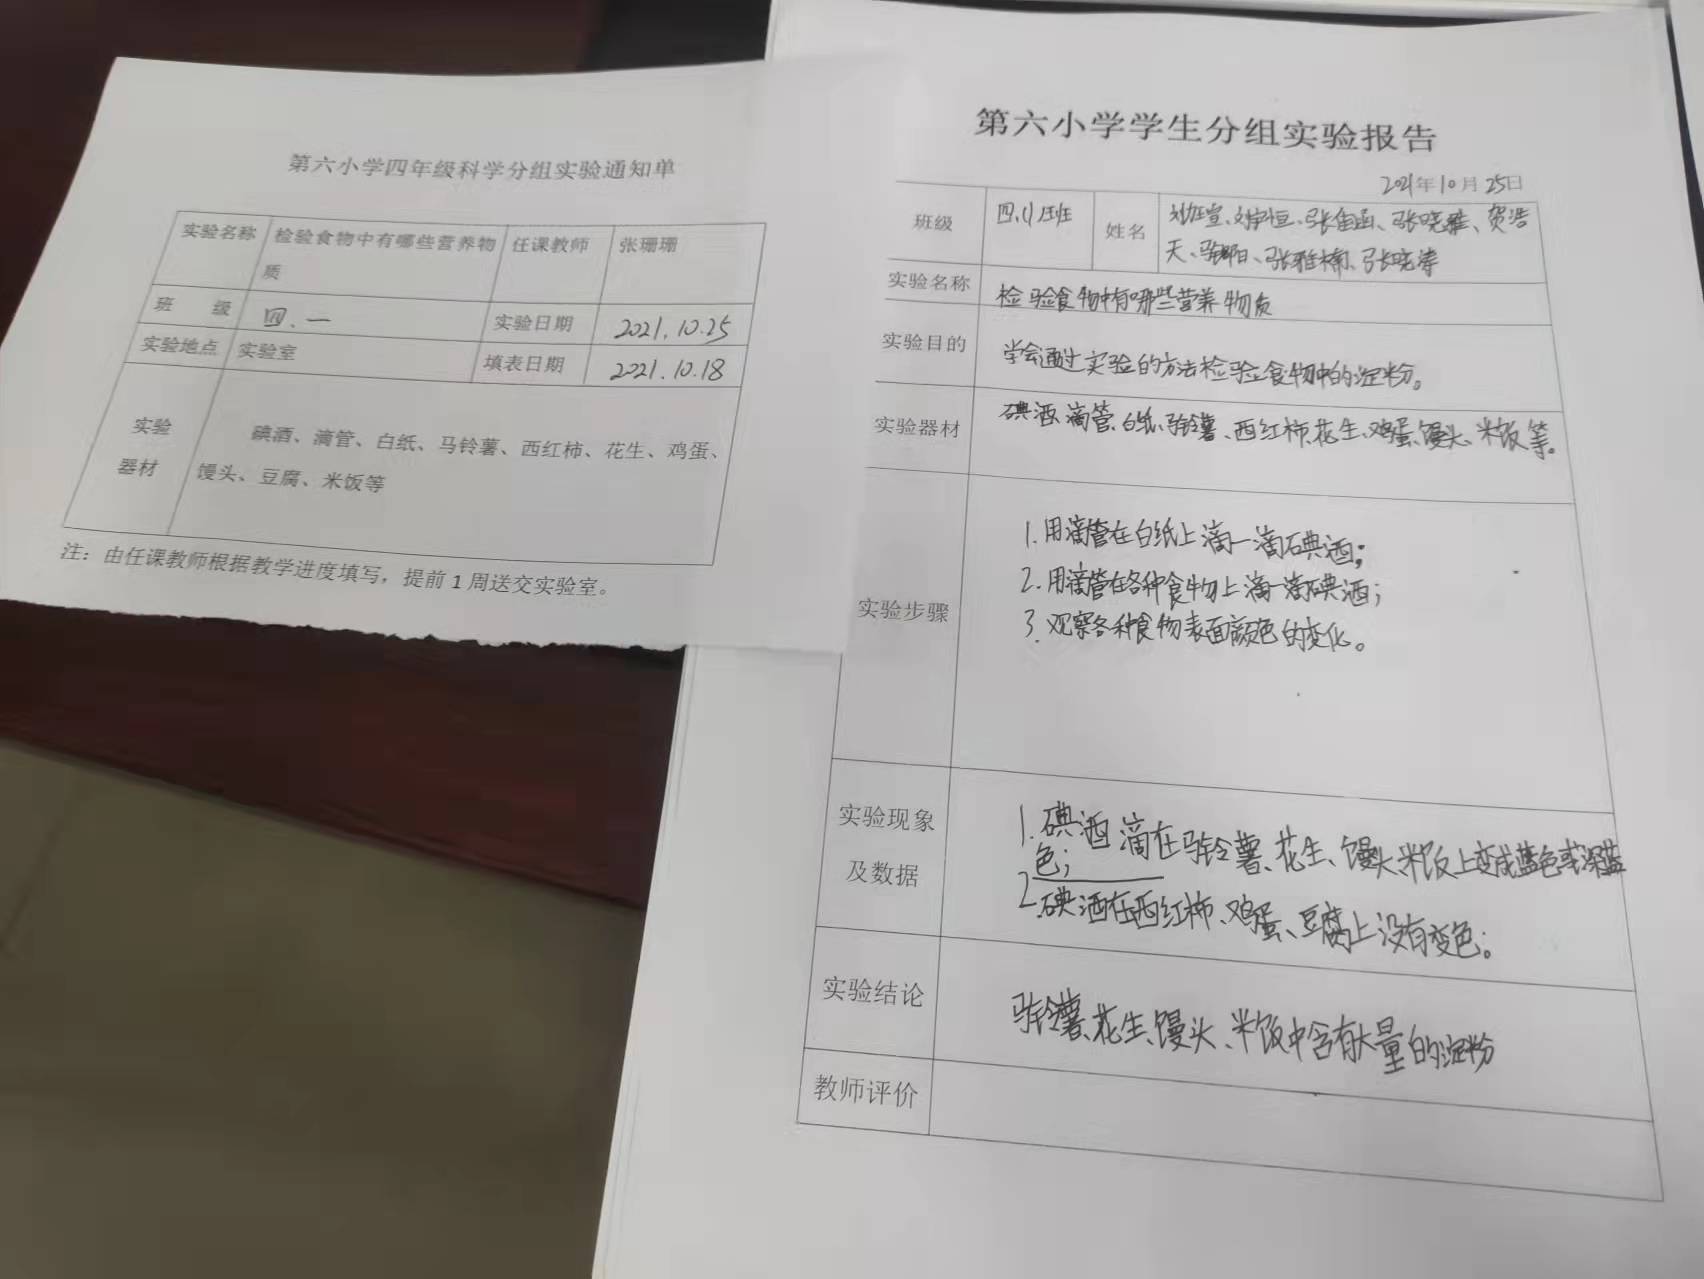 第六小学四年级科学分组实验通知单
实验名称 检验食物中有哪些营养物质 任课教师 张珊珊
班 级 四、一 实验日期 2021.10.25
实验地点 实验室 填表日期 2021.10.18
实验器材 碘酒、滴管、白纸、马铃薯、西红柿、花生、鸡蛋、
馒头、豆腐、米饭等
注：由任课教师根据教学进度填写，提前1周送交实验室。
第六小学学生分组实验报告
2021年10月25日
班级 四.(1)班 姓名 张佳函、张晓雅、贺浩
天、张雅楠、张晓涛
实验名称 检验食物中有哪些营养物质
实验目的 学会通过实验的方法检验食物中的淀粉。
实验器材 碘酒、滴管、白纸、马铃薯、西红柿、花生、鸡蛋、馒头、米饭等。
实验步骤
1.用滴管在白纸上滴一滴碘酒；
2.用滴管在各种食物上滴一滴碘酒；
3.观察各种食物表面颜色的变化。
实验现象及数据
1.碘酒滴在马铃薯、花生、馒头、米饭上变成蓝色或深蓝
色；
2.碘酒在西红柿、鸡蛋、豆腐上没有变色。
实验结论 马铃薯、花生、馒头、米饭中含有大量的淀粉
教师评价